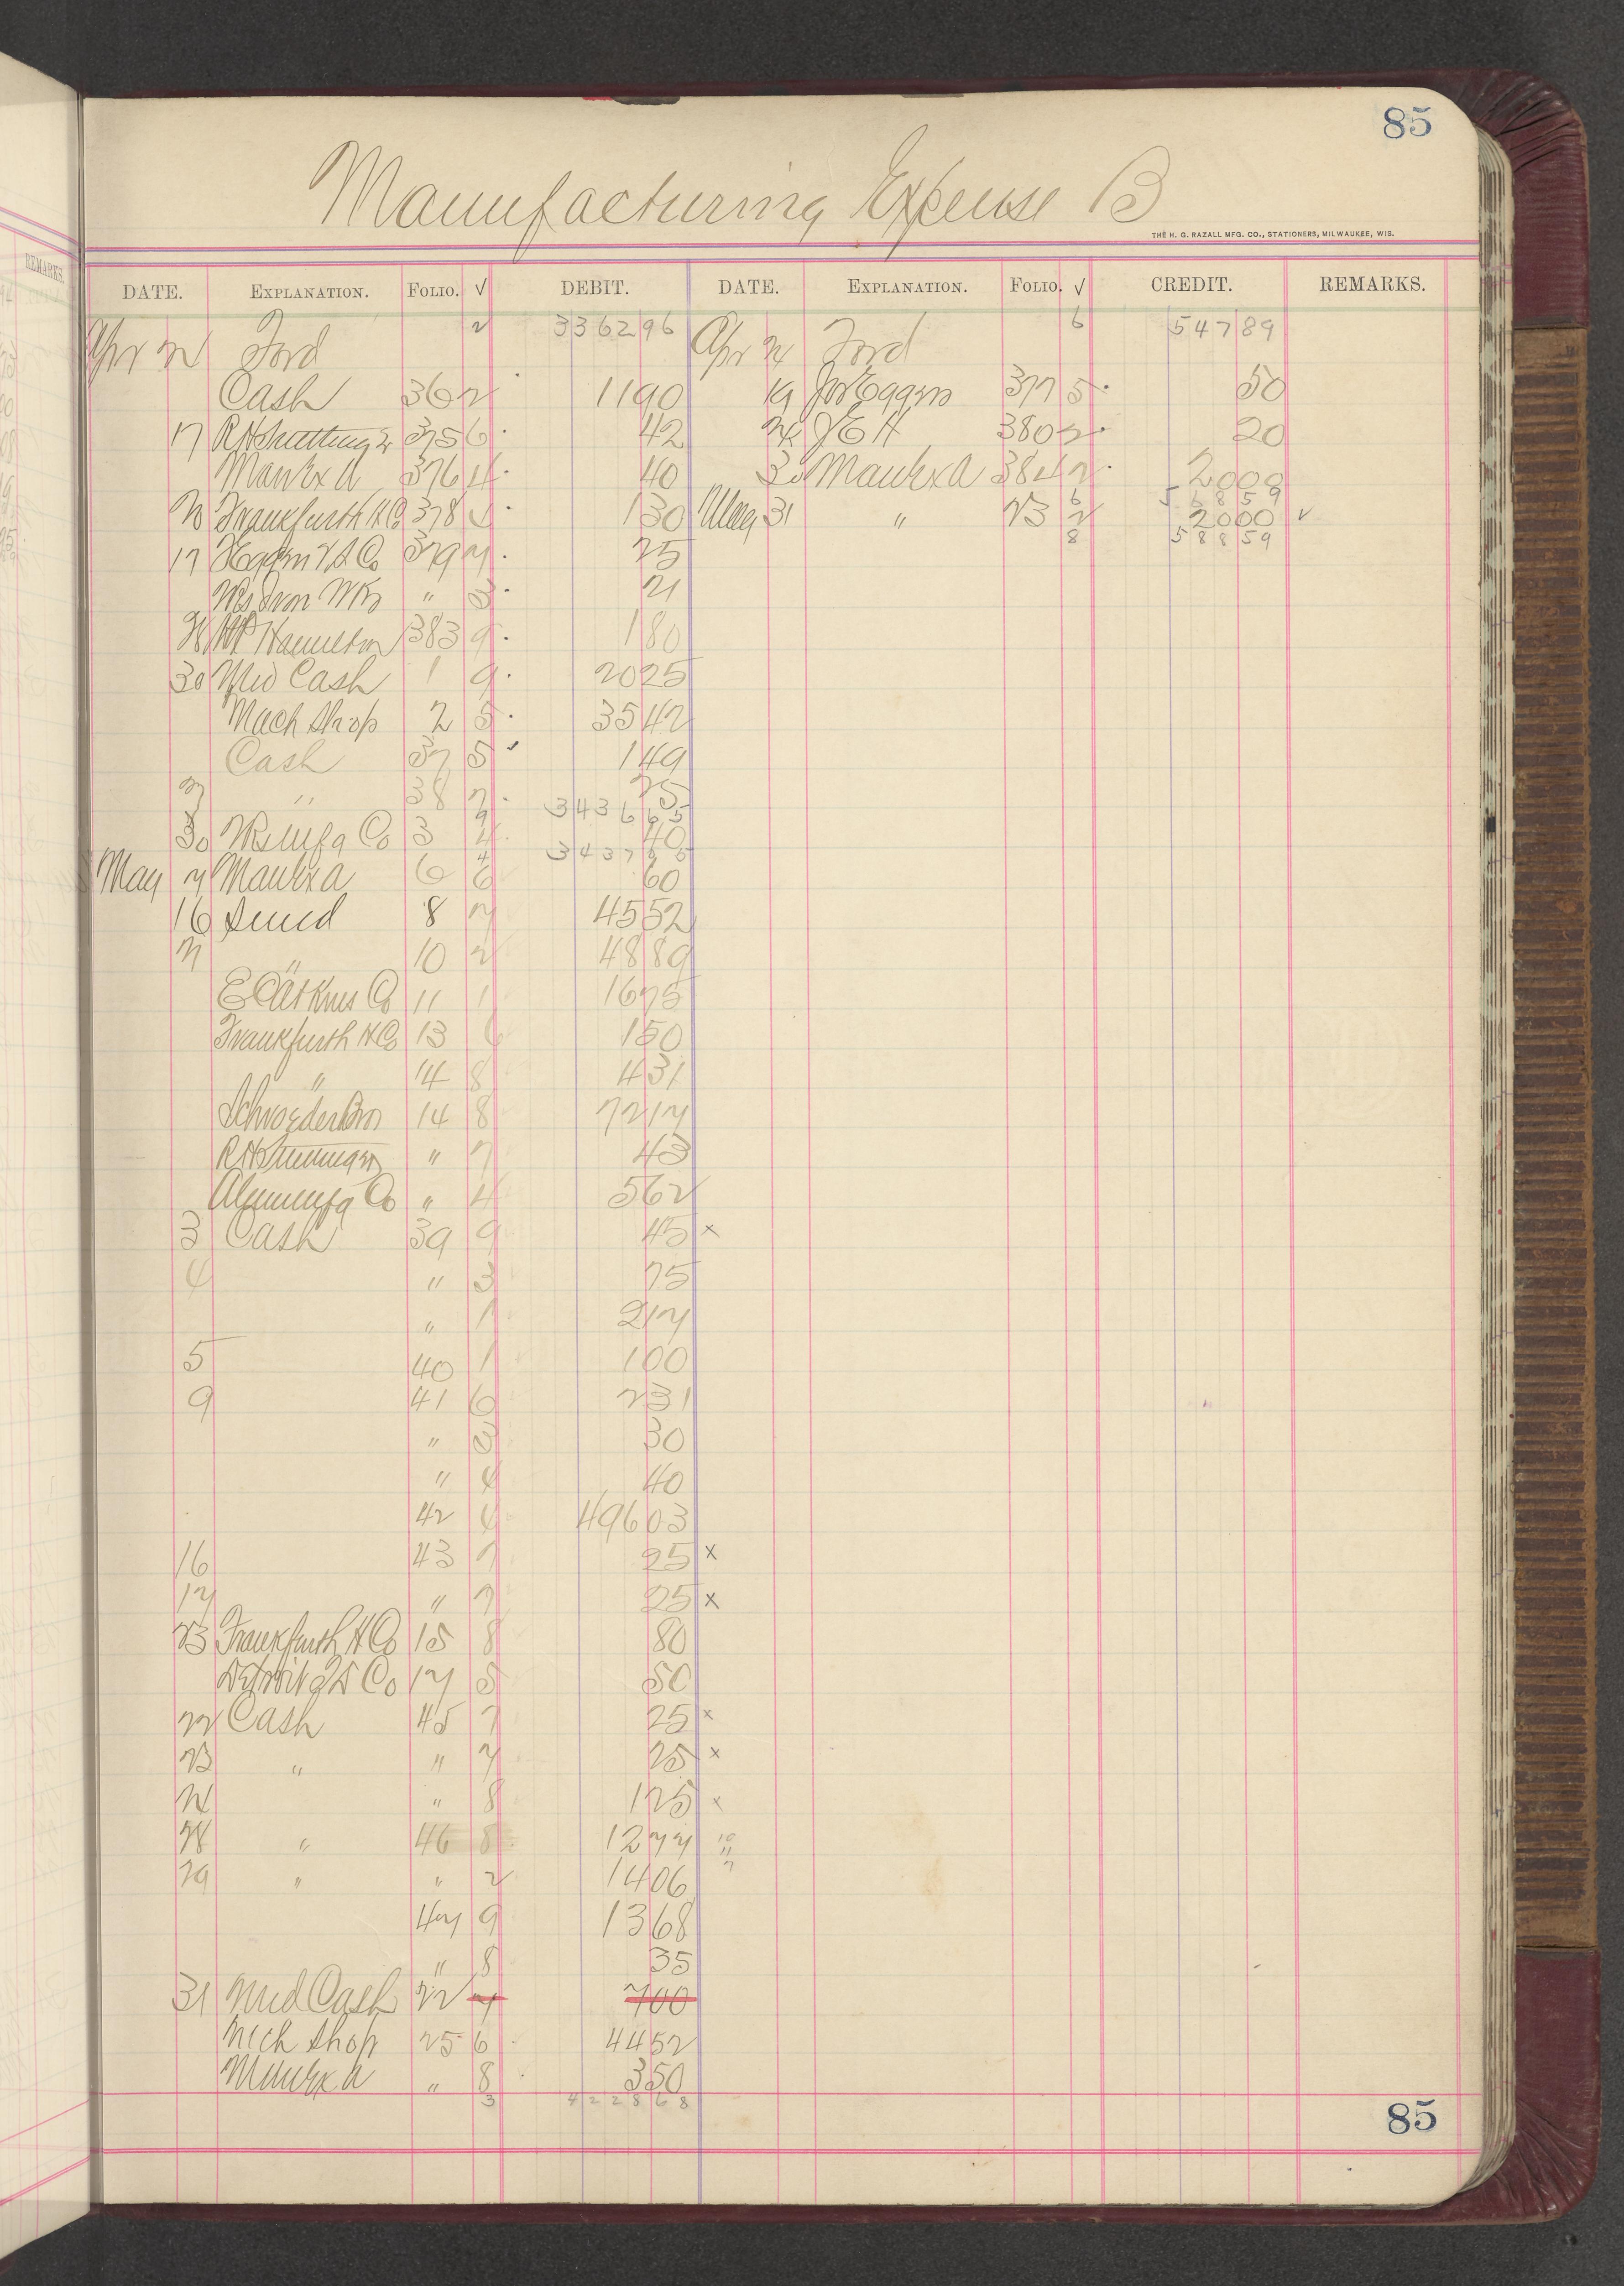 85
Manufacturing Expense B
THE H. G. RAZALL MFG. CO., STATIONERS, MILWAUKEE, WIS.
REMARKS.
DATE. EXPLANATION. FOLIO. √ DEBIT. DATE. EXPLANATION. FOLIO. √ CREDIT. REMARKS.
Apr Ford 2 336296 Apr Ford 6 54789
Cash 36 2 1190 19 377 5 50
17 375 6 42 J E H 380 2 20
Manfex A 376 4 40 30 Manfex A 384 2 2000
56859
Frankfurth H Co 378 130 May 31 " 23 2 2000 √
8 58859
17 379 7 25
" 3 21
Hamilton 383 9 180
30 Mdd Cash 1 9 2025
Mach Shop 2 5 3542
Cash 37 5 149
" 38 7 25
9 343665
30 Mfg Co 3 4 40
4
May 7 Manfex A 6 6 60
16 8 7 4552
" 10 2 4889
E C Atkins Co 11 1 1675
Frankfurth H Co 13 6 150
" 14 8 431
Schroeder Bros 14 8 7217
" 7 43
Co " 4 562
3 Cash 39 9 45 x
4 " 3 75
" 1 217
5 40 1 100
9 41 6 231
" 3 30
" 4 40
42 4 49603
16 43 7 25 x
17 " 7 25 x
23 Frankfurth H Co 15 8 80
Detroit Co 17 5 50
22 Cash 45 7 25 x
23 " " 7 25 x
24 " 8 125 x
28 " 46 8 1277 10
11
7
29 " " 2 1406
47 9 1368
" 8 35
31 Mdd Cash 22 7 700
Mch Shop 25 6 4452
Manfex A " 8 350
3 422868
85